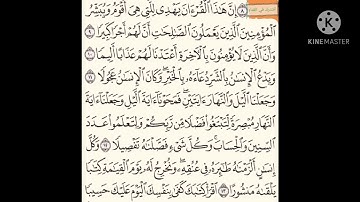 إِنَّ هَٰذَا ٱلْقُرْءَانَ يَهْدِى لِلَّتِى هِىَ أَقْوَمُ وَيُبَشِّرُ
ٱلْمُؤْمِنِينَ ٱلَّذِينَ يَعْمَلُونَ ٱلصَّٰلِحَٰتِ أَنَّ لَهُمْ أَجْرًا كَبِيرًا ٩
وَأَنَّ ٱلَّذِينَ لَا يُؤْمِنُونَ بِٱلْءَاخِرَةِ أَعْتَدْنَا لَهُمْ عَذَابًا أَلِيمًا ١٠
وَيَدْعُ ٱلْإِنسَٰنُ بِٱلشَّرِّ دُعَآءَهُۥ بِٱلْخَيْرِ وَكَانَ ٱلْإِنسَٰنُ عَجُولًا ١١
وَجَعَلْنَا ٱلَّيْلَ وَٱلنَّهَارَ ءَايَتَيْنِ فَمَحَوْنَآ ءَايَةَ ٱلَّيْلِ وَجَعَلْنَآ ءَايَةَ
ٱلنَّهَارِ مُبْصِرَةً لِّتَبْتَغُوا۟ فَضْلًا مِّن رَّبِّكُمْ وَلِتَعْلَمُوا۟ عَدَدَ
ٱلسِّنِينَ وَٱلْحِسَابَ وَكُلَّ شَىْءٍ فَصَّلْنَٰهُ تَفْصِيلًا ١٢ وَكُلَّ
إِنسَٰنٍ أَلْزَمْنَٰهُ طَٰٓئِرَهُۥ فِى عُنُقِهِۦ وَنُخْرِجُ لَهُۥ يَوْمَ ٱلْقِيَٰمَةِ كِتَٰبًا
يَلْقَىٰهُ مَنشُورًا ١٣ ٱقْرَأْ كِتَٰبَكَ كَفَىٰ بِنَفْسِكَ ٱلْيَوْمَ عَلَيْكَ حَسِيبًا
Made with
KINEMASTER